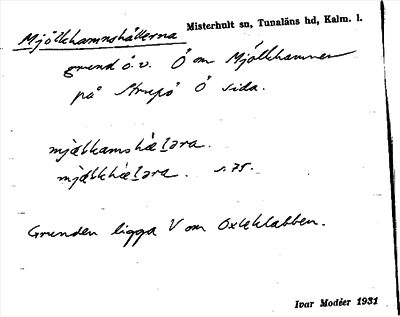 Mjölkhamnshällerna
Misterhult sn, Tunaläns hd, Kalm. l.
grund ö.v. Ö om Mjölkhamnen
på Strupö Ö sida.
mjælkamshæḷəra.
mjælkhæḷəra. s. 75.
Grunden ligga V om Oxleklabben.
Ivar Modéer 1931